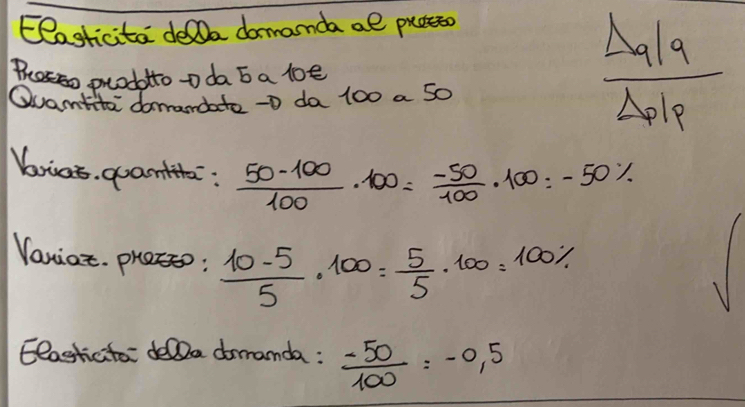 Elasticità della domanda al prezzo
Δq/q
Δp/p
Prezzo prodotto → da 5 a 10€
Quantità domandata → da 100 a 50
Variaz. quantità: 50-100/100 · 100 = -50/100 · 100 = -50%
Variaz. prezzo: 10-5/5 · 100 = 5/5 · 100 = 100%
Elasticità della domanda: -50/100 = -0,5